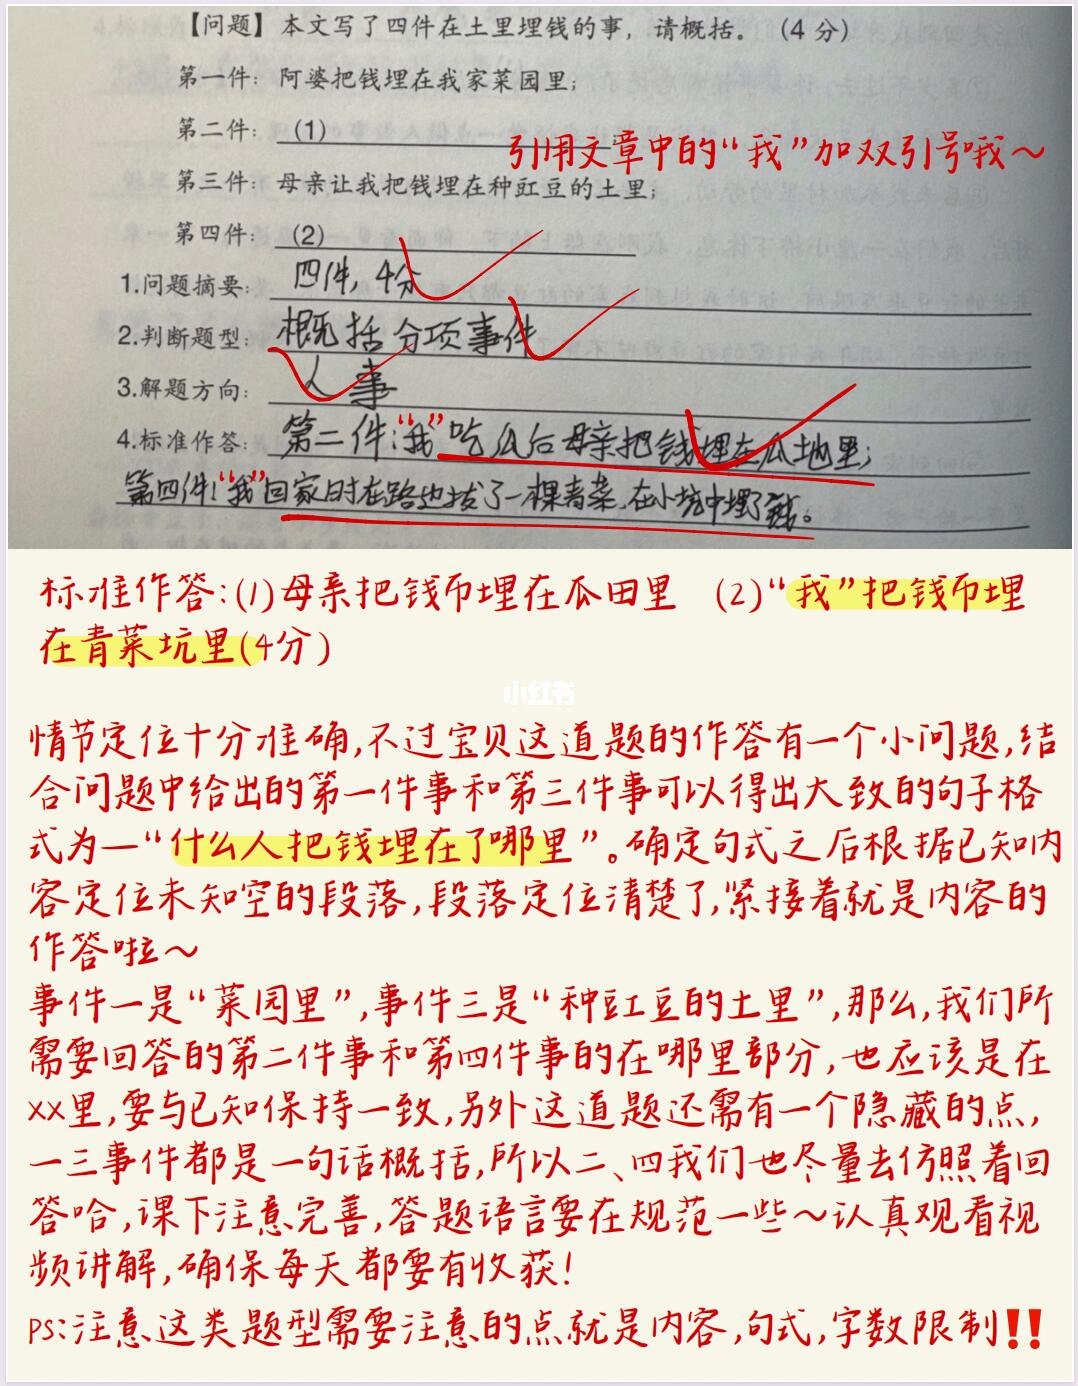 【问题】本文写了四件在土里埋钱的事，请概括。（4 分）
第一件：阿婆把钱埋在我家菜园里；
第二件：(1)
引用文章中的“我”加双引号哦～
第三件：母亲让我把钱埋在种豇豆的土里；
第四件：(2)
1.问题摘要：四件，4分
2.判断题型：概括分项事件
3.解题方向：人 事
4.标准作答：第二件：“我”吃瓜后母亲把钱埋在瓜地里；
第四件：“我”回家时在路边拔了一棵青菜，在小坑中埋了钱。
标准作答：(1)母亲把钱币埋在瓜田里 (2)“我”把钱币埋
在青菜坑里(4分)
小红书
情节定位十分准确，不过宝贝这道题的作答有一个小问题，结
合问题中给出的第一件事和第三件事可以得出大致的句子格
式为—“什么人把钱埋在了哪里”。确定句式之后根据已知内
容定位未知空的段落，段落定位清楚了，紧接着就是内容的
作答啦～
事件一是“菜园里”，事件三是“种豇豆的土里”，那么，我们所
需要回答的第二件事和第四件事的在哪里部分，也应该是在
xx里，要与已知保持一致，另外这道题还需有一个隐藏的点，
一三事件都是一句话概括，所以二、四我们也尽量去仿照着回
答哈，课下注意完善，答题语言要在规范一些～认真观看视
频讲解，确保每天都要有收获！
PS：注意这类题型需要注意的点就是内容，句式，字数限制‼️